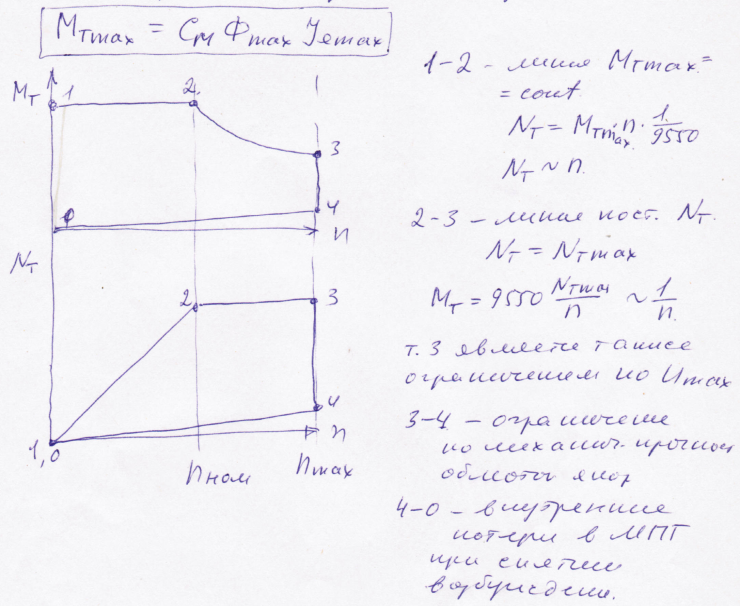 Mтmax = Cм Фmax Jяmax
Mт
1
2
3
4
0
n
Nт
2
3
4
1,0
n
nном
nmax
1-2 - линия Mтmax =
= const
Nт = Mтmax · n · 1/9550
Nт ~ n
2-3 - линия пост. Nт.
Nт = Nтmax
Mт = 9550 Nтmax/n ~ 1/n
т. 3 является также
ограничением по Umax
3-4 - ограничение
по механич. прочности
обмотки якоря
4-0 - внутренние
потери в МПТ
при снятии
возбуждения.